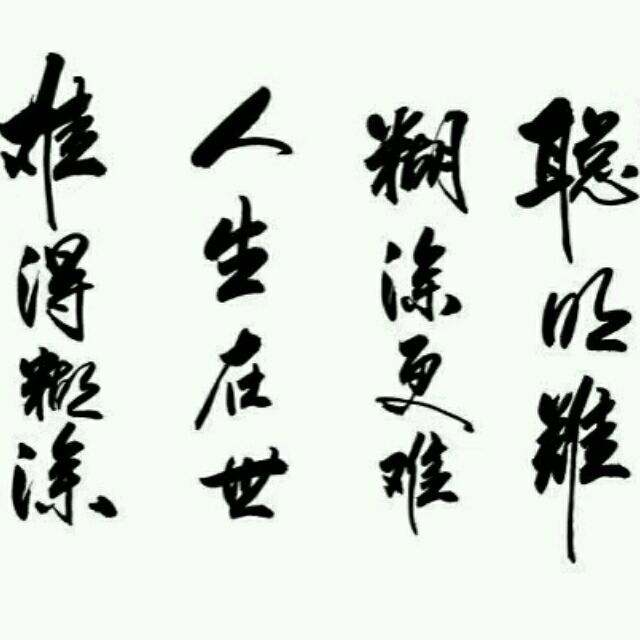 聪明難
糊涂更难
人生在世
难得糊涂